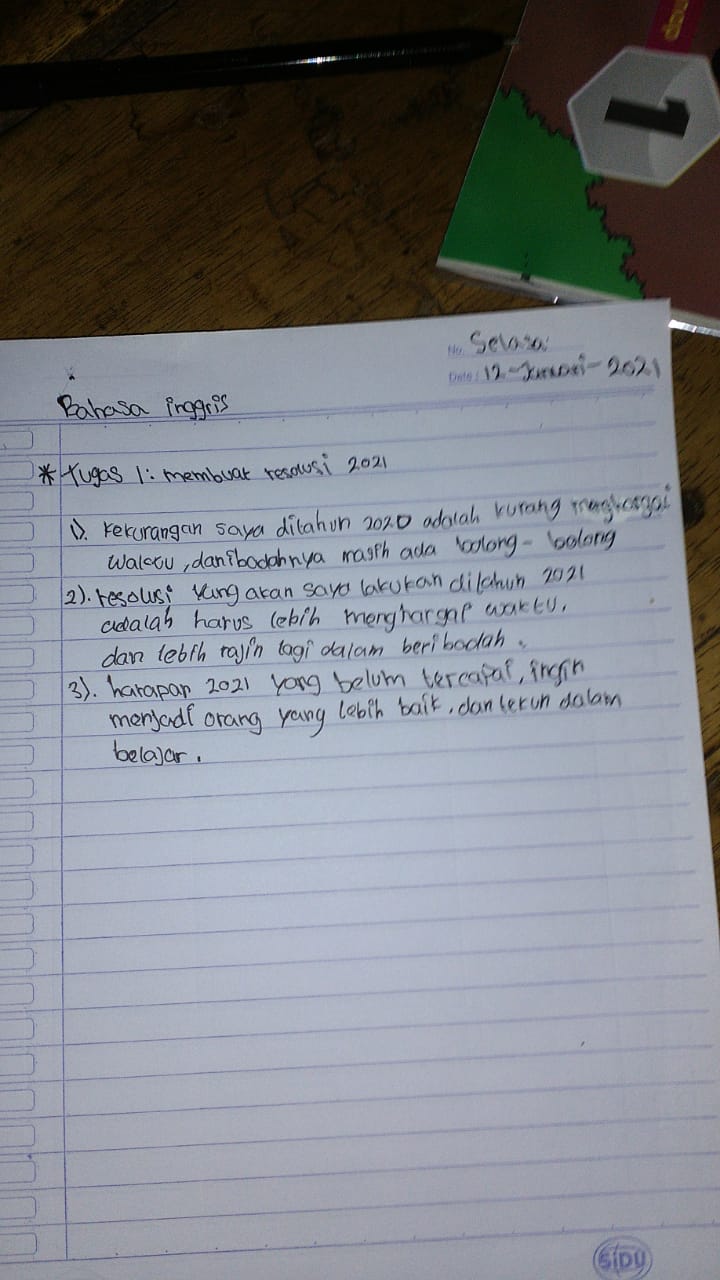 1
No. Selasa
Date: 12-Januari-2021
Bahasa inggris
* Tugas 1: membuat resolusi 2021
1). kekurangan saya ditahun 2020 adalah kurang menghargai
waktu, dan ibadahnya masih ada bolong-bolong
2). resolusi yang akan saya lakukan ditahun 2021
adalah harus lebih menghargai waktu,
dan lebih rajin lagi dalam beribadah.
3). harapan 2021 yang belum tercapai, ingin
menjadi orang yang lebih baik, dan tekun dalam
belajar.
SIDU